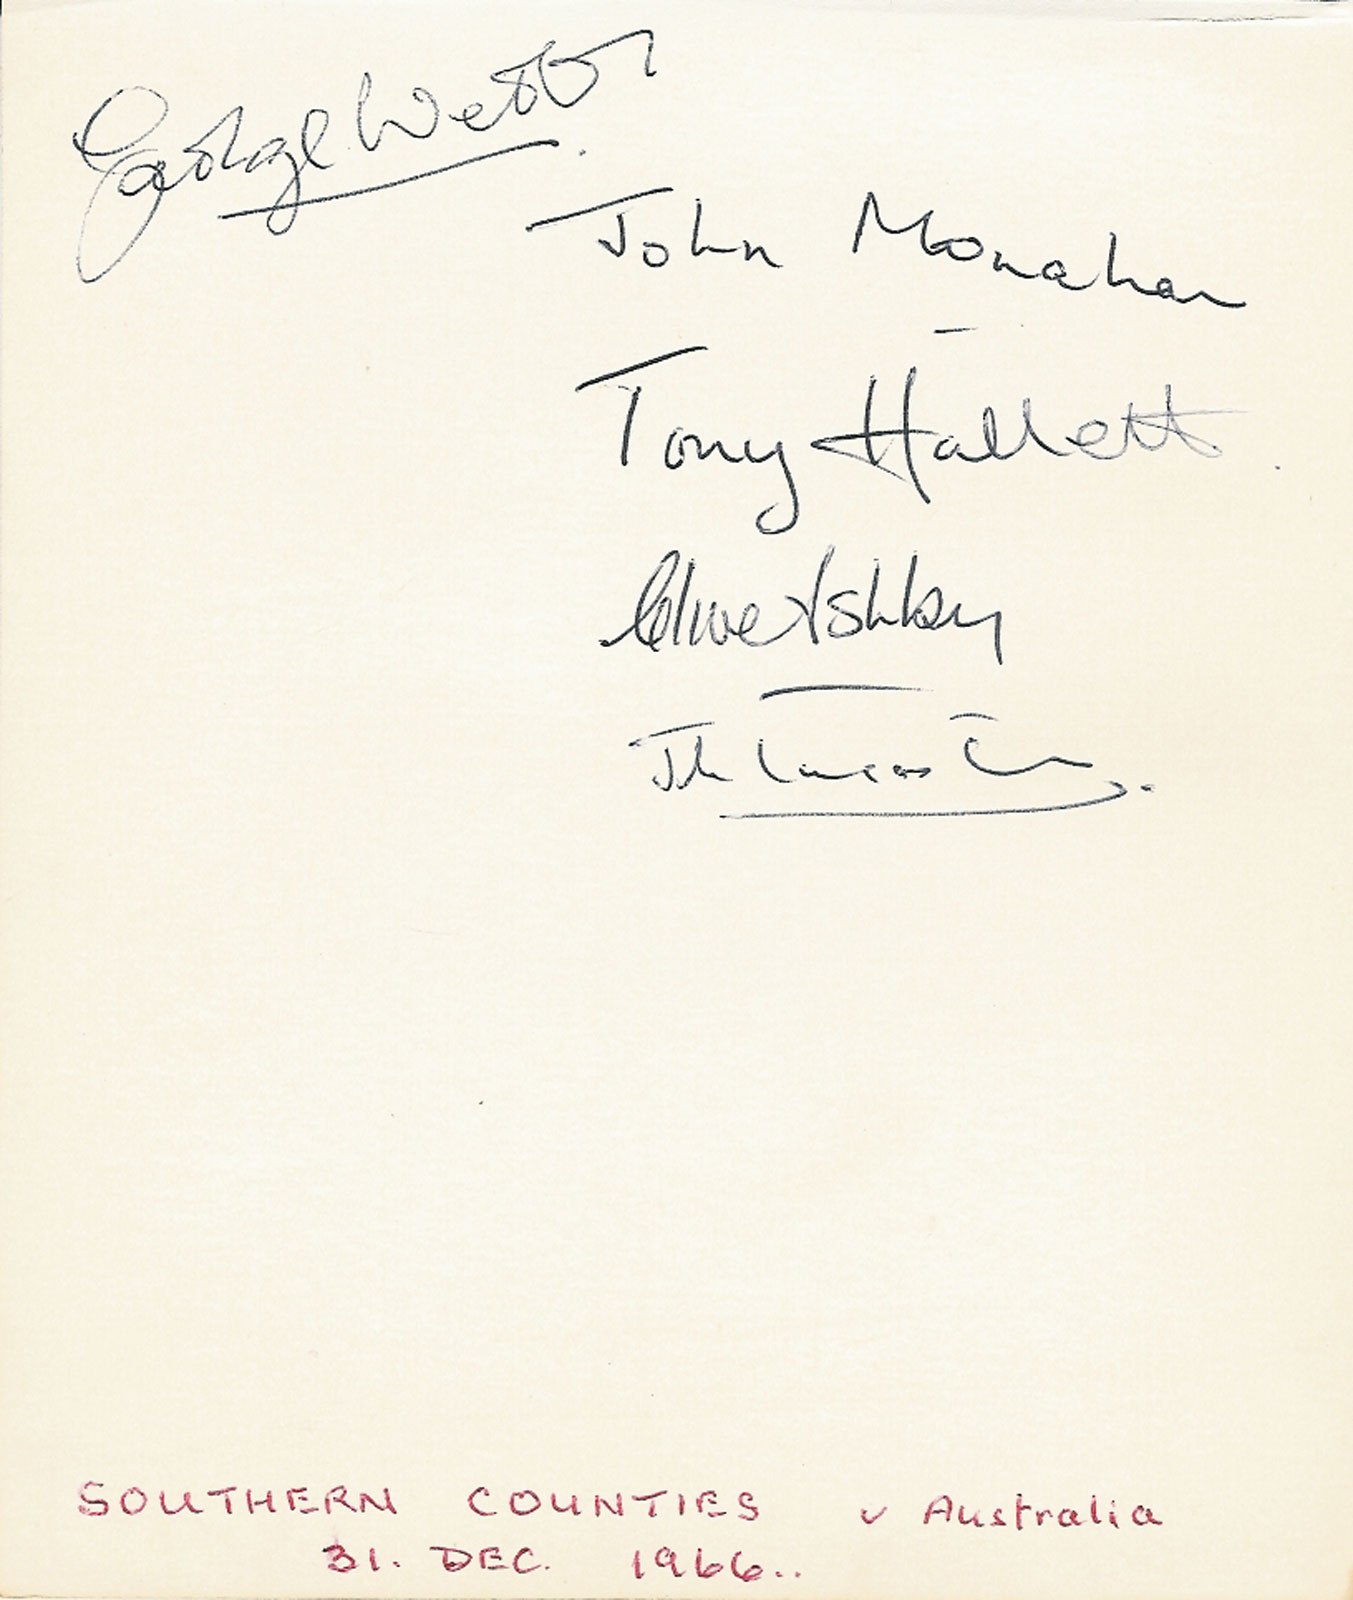 George
John Monahan
Tony Hallett
Clive Ashby
SOUTHERN COUNTIES v Australia
31. DEC. 1966..